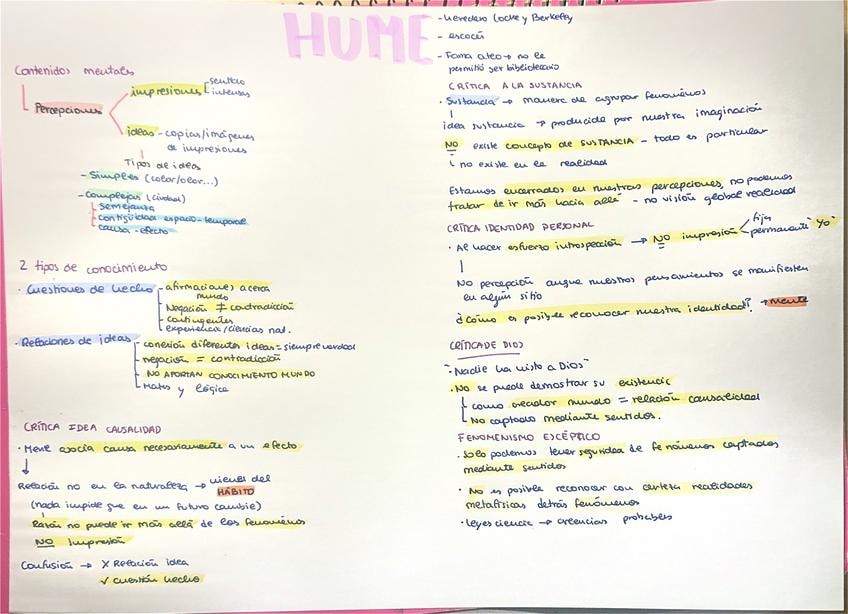 HUME
- heredero Locke y Berkeley
- escocés
- Fama ateo → no le
permitió ser bibliotecario
Contenidos mentales
Percepciones
impresiones
sentido
intensas
ideas - copias/imágenes
de impresiones
Tipos de ideas
- Simples (color/olor...)
- Complejas (ciudad)
semejanza
contigüidad espacio-temporal
causa-efecto
2 tipos de conocimiento
· Cuestiones de hecho - afirmaciones acerca
mundo
Negación ≠ contradicción
contingentes
experiencia/ciencias nat.
· Relaciones de ideas
conexión diferentes ideas = siempre verdad
negación = contradicción
NO APORTAN CONOCIMIENTO MUNDO
Mates y lógica
CRÍTICA IDEA CAUSALIDAD
· Mente asocia causa necesariamente a un efecto
Relación no en la naturaleza → viene del
HÁBITO
(nada impide que en un futuro cambie)
Razón no puede ir más allá de los fenómenos
NO Impresión
Confusión → X Relación idea
✓ cuestión hecho
CRÍTICA A LA SUSTANCIA
· Sustancia → manera de agrupar fenómenos
idea sustancia → producida por nuestra imaginación
NO existe concepto de SUSTANCIA - todo es particular
no existe en la realidad
Estamos encerrados en nuestras percepciones, no podemos
tratar de ir más hacia allá - no visión global realidad
CRÍTICA IDENTIDAD PERSONAL
· Al hacer esfuerzo introspección → NO impresión
fija
permanente "Yo"
No percepción aunque nuestros pensamientos se manifiesten
en algún sitio
¿Cómo es posible reconocer nuestra identidad? → mente
CRÍTICA DE DIOS
"Nadie ha visto a Dios"
· No se puede demostrar su existencia
como creador mundo = relación causalidad
No captado mediante sentidos.
FENOMENISMO ESCÉPTICO
· Solo podemos tener seguridad de fenómenos captados
mediante sentidos
· No es posible reconocer con certeza realidades
metafísicas detrás fenómenos
· Leyes ciencia → creencias probables